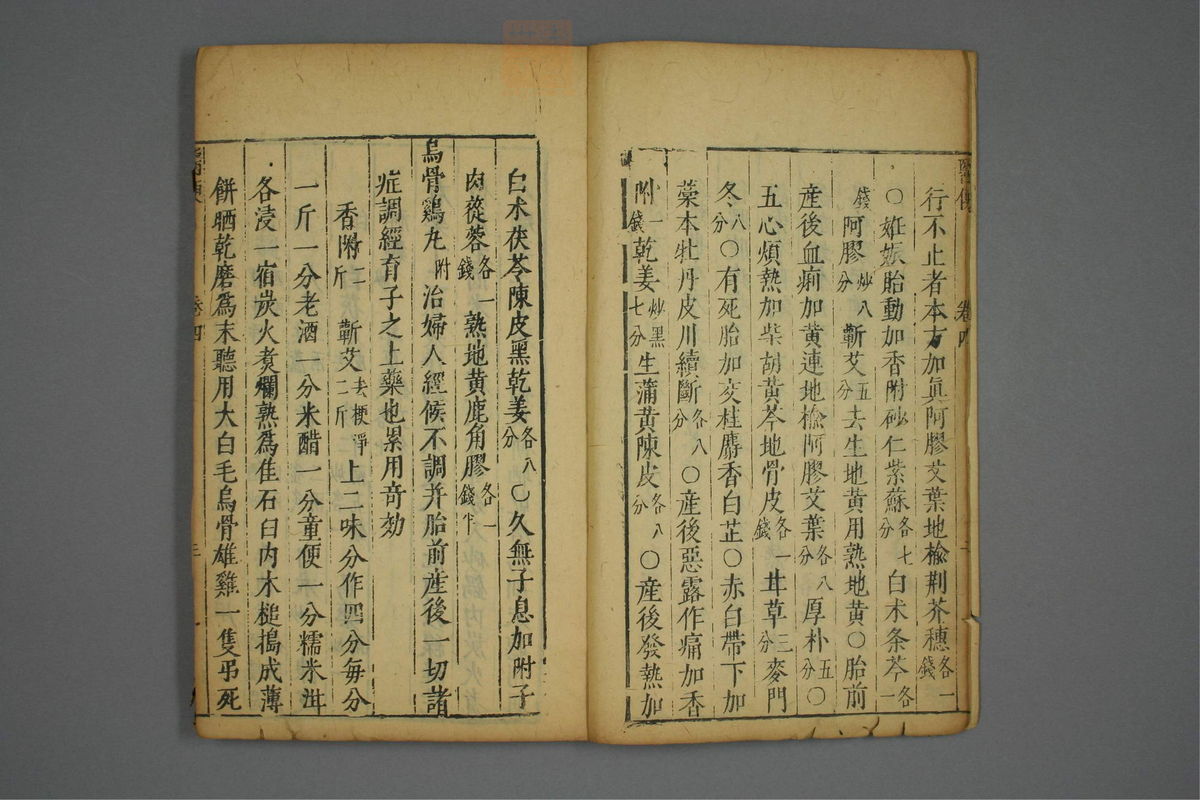 行不止者本方加眞阿膠艾葉地楡荆芥穗各一錢
○姙娠胎動加香附砂仁紫蘇各七分白术条芩各一
錢阿膠炒八分蘄艾五分去生地黄用熟地黄○胎前
産後血痢加黄連地楡阿膠艾葉各八分厚朴五分○
五心煩熱加柴胡黄芩地骨皮各一錢甘草三分麥門
冬八分○有死胎加交桂麝香白芷○赤白帶下加
藁本牡丹皮川續斷各八分○産後惡露作痛加香
附一錢乾姜炒黑七分生蒲黄陳皮各八分○産後發熱加
卷四
白术茯苓陳皮黑乾姜各八分○久無子息加附子
肉蓯蓉各一錢熟地黄鹿角膠各一錢半
烏骨鷄丸附治婦人經候不調并胎前産後一切諸
症調經育子之上藥也累用竒効
香附二斤蘄艾去梗淨二斤上二味分作四分每分
一斤一分老酒一分米醋一分童便一分糯米泔
各浸一宿炭火煑爛熟爲佳石臼内木槌搗成薄
餅晒乾磨爲末聽用大白毛烏骨雄雞一隻弔死
卷四